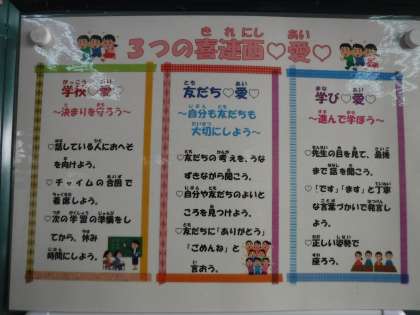 ３つの喜連西♡愛♡
学校♡愛♡
～決まりを守ろう～
♡話している人におへそ
を向けよう。
♡チャイムの合図で
着席しよう。
♡次の学習の準備をし
てから、休み
時間にしよう。
友だち♡愛♡
～自分も友だちも
大切にしよう～
♡友だちの考えを、うな
ずきながら聞こう。
♡自分や友だちのよいと
ころを見つけよう。
♡友だちに「ありがとう」
「ごめんね」と
言おう。
学び♡愛♡
～進んで学ぼう～
♡先生の目を見て、最後
まで話を聞こう。
♡「です」「ます」と丁寧
な言葉づかいで発言し
よう。
♡正しい姿勢で
座ろう。